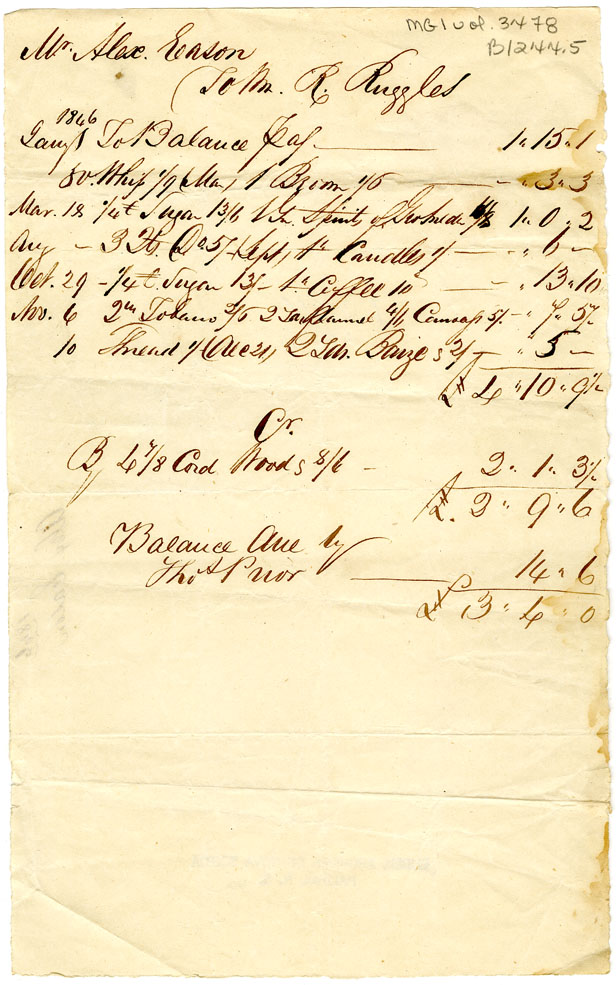 MG1 vol. 3478
B1244.5
Mr. Alex. Eason
To Wm. R. Ruggles
1846
Jany 1 To Balance 1 " 15 " 1
Whip 1/9 1 Broom 1/6 " 3 " 3
Mar. 18 1/4 Sugar 13/6 Spirits of 1 " 0 " 2
Aug 3 lb. 5/ Sept, Candles 1/ " 6 "
Oct. 29 1/4 Sugar 13/ Coffee 10 " 13 " 10
Nov. 6 Tobacco 2 Flannel Canvass 5/
10 Thread 2 Yds. Baize @ 2/ " 5
4 " 10 " 9 1/2
Cr.
By 4 7/8 Cord Wood @ 8/6 2 " 1 " 3 1/2
2 " 9 " 6
Balance due by
Thos. Prior 14 " 6
3 " 4 " 0